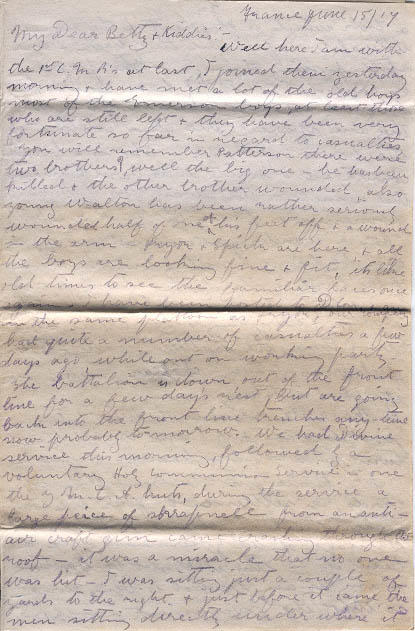 France June 15/17
My Dear Betty & Kiddies:-
Well here I am with
the 1st C.M.R's at last, I joined them yesterday
morning & have met a lot of the old boys
most of the Emerson boys, at least those
who are still left & they have been very
fortunate so far in regard to casualties
you will remember Patterson there were
two brothers, well the big one - he has been
killed & the other brother wounded, also
young Walton has been rather seriously
wounded half of one of his feet off & a wound
in the arm - Pryor & Spark are here & all
the boys are looking fine & fit, its like
old times to see the familiar faces once
again I have been posted to D Company
in the same platoon as Pryor
had quite a number of casualties a few
days ago while out on working party
The battalion is down out of the front
line for a few days rest, but are going
back into the front line trenches any time
now probably tomorrow. We had Divine
service this morning, followed by a
voluntary Holy Communion Service in one
the Y.M.C.A. huts, during the service a
large peice of shrapnell from an anti-
air craft gun came crashing through the
roof - it was a miracle that no one
was hit - I was sitting just a couple of
yards to the right & just before it came the
men sitting directly under where it